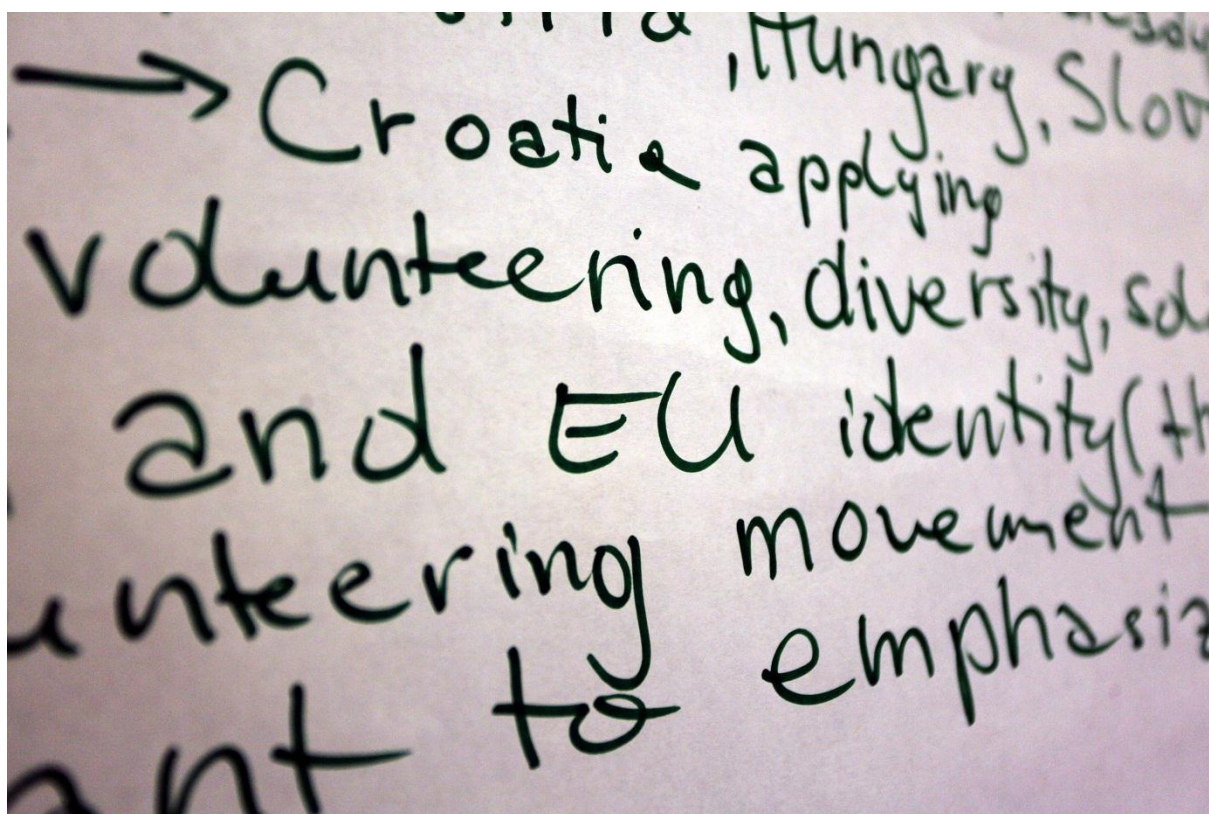 , Hungary, Slov
→ Croatia applying
volunteering, diversity, sol
and EU identity (th
unteering movement
ant to emphasiz